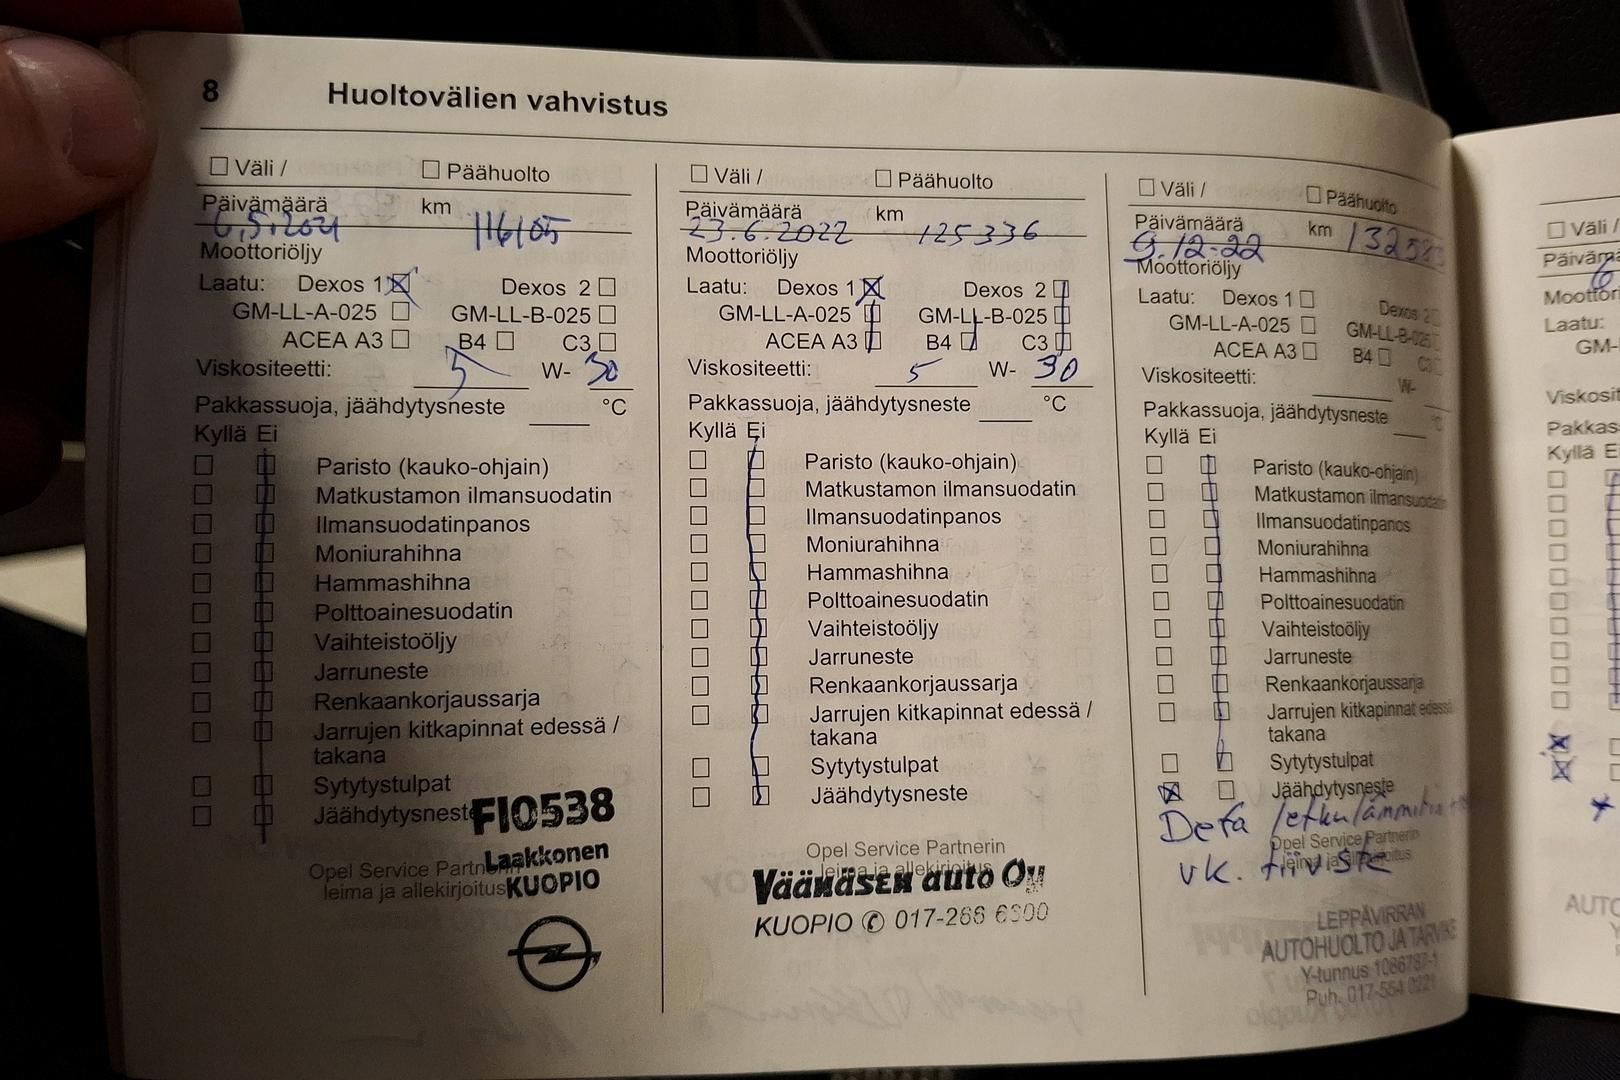 8 Huoltovälien vahvistus
Väli / Päähuolto
Päivämäärä km
6.5.2021 116105
Moottoriöljy
Laatu: Dexos 1 Dexos 2
GM-LL-A-025 GM-LL-B-025
ACEA A3 B4 C3
Viskositeetti: 5 W- 30
Pakkassuoja, jäähdytysneste °C
Kyllä Ei
Paristo (kauko-ohjain)
Matkustamon ilmansuodatin
Ilmansuodatinpanos
Moniurahihna
Hammashihna
Polttoainesuodatin
Vaihteistoöljy
Jarruneste
Renkaankorjaussarja
Jarrujen kitkapinnat edessä /
takana
Sytytystulpat
Jäähdytysneste
FI0538
Laakkonen
KUOPIO
Opel Service Partnerin
leima ja allekirjoitus
Väli / Päähuolto
Päivämäärä km
23.6.2022 125336
Moottoriöljy
Laatu: Dexos 1 Dexos 2
GM-LL-A-025 GM-LL-B-025
ACEA A3 B4 C3
Viskositeetti: 5 W- 30
Pakkassuoja, jäähdytysneste °C
Kyllä Ei
Paristo (kauko-ohjain)
Matkustamon ilmansuodatin
Ilmansuodatinpanos
Moniurahihna
Hammashihna
Polttoainesuodatin
Vaihteistoöljy
Jarruneste
Renkaankorjaussarja
Jarrujen kitkapinnat edessä /
takana
Sytytystulpat
Jäähdytysneste
Opel Service Partnerin
leima ja allekirjoitus
Väänäsen auto Oy
KUOPIO ✆ 017-266 6300
Väli / Päähuolto
Päivämäärä km
9.12-22
Moottoriöljy
Laatu: Dexos 1 Dexos 2
GM-LL-A-025 GM-LL-B-025
ACEA A3 B4 C3
Viskositeetti: W-
Pakkassuoja, jäähdytysneste °C
Kyllä Ei
Paristo (kauko-ohjain)
Matkustamon ilmansuodatin
Ilmansuodatinpanos
Moniurahihna
Hammashihna
Polttoainesuodatin
Vaihteistoöljy
Jarruneste
Renkaankorjaussarja
Jarrujen kitkapinnat edessä
takana
Sytytystulpat
Jäähdytysneste
Defa
Opel Service Partnerin
leima ja allekirjoitus
vk. tiiviste
LEPPÄVIRRAN
AUTOHUOLTO JA TARVIKE
Y-tunnus 1086787-1
Puh. 017-554 0221
Väli /
Päivämä
6
Moottori
Laatu:
GM-
Viskosit
Pakkas
Kyllä E
AUTO